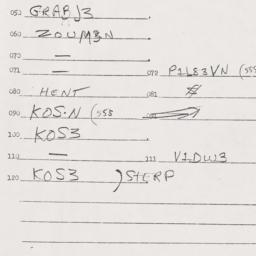 050 GRABJ3
060 ZOUM3N
070 —
071 — 072 P1LS3VN (558
080 HENT 081
090 KOS·N (558
100 KOS3
110 — 111 V1DW3
120 KOS3 )STERP